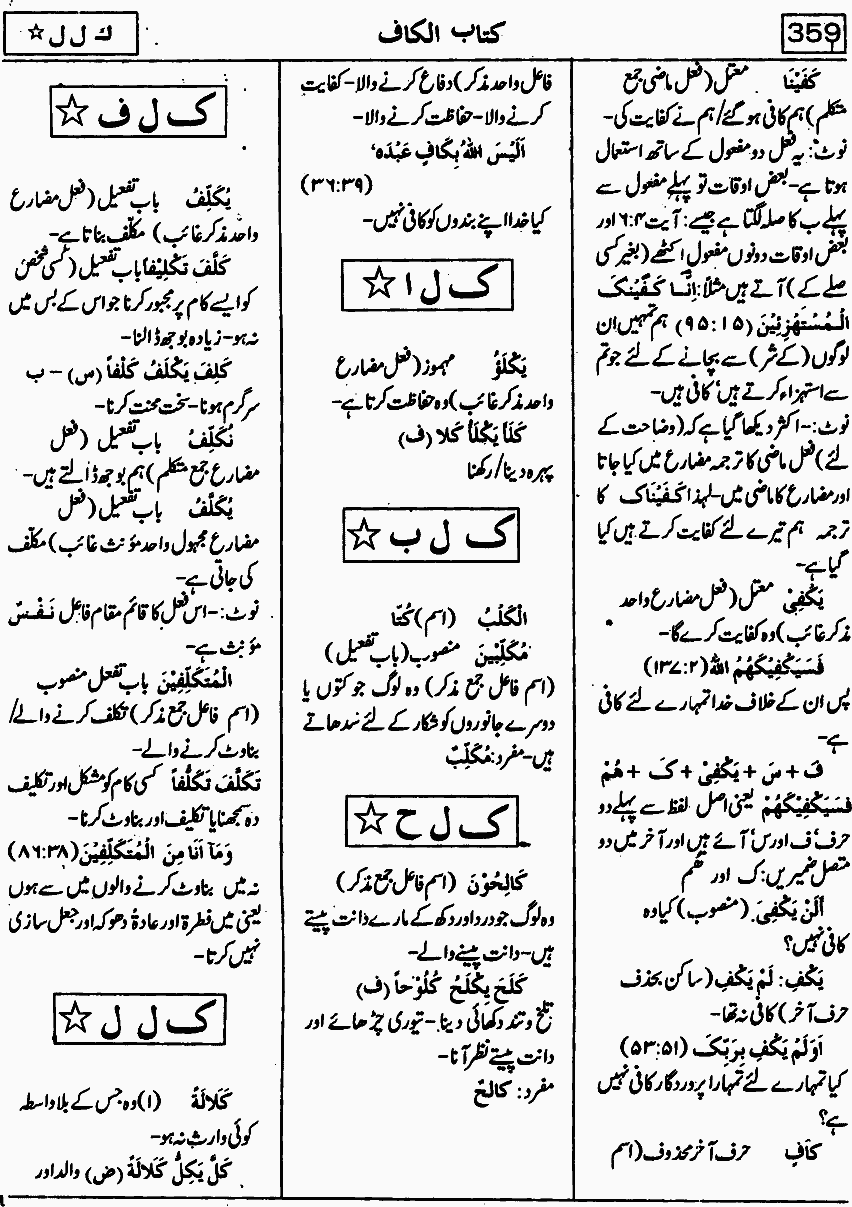 359
کتاب الکاف
ک ل ل ☆
کَفَیْنَا معتل (فعل ماضی جمع
متکلم) ہم کافی ہو گئے/ہم نے کفایت کی-
نوٹ: یہ فعل دو مفعول کے ساتھ استعمال
ہوتا ہے- بعض اوقات تو پہلے مفعول سے
پہلے ب کا صلہ لگتا ہے جیسے: آیت ۶:۴ اور
بعض اوقات دونوں مفعول اکٹھے (بغیر کسی
صلے کے) آتے ہیں مثلاً: اِنَّا کَفَیْنٰکَ
الْمُسْتَهْزِئِیْنَ (۹۵:۱۵) ہم تمہیں ان
لوگوں (کے شر) سے بچانے کے لئے جو تم
سے استہزاء کرتے ہیں' کافی ہیں-
نوٹ:- اکثر دیکھا گیا ہے کہ (وضاحت کے
لئے) فعل ماضی کا ترجمہ مضارع میں کیا جاتا
اور مضارع کا ماضی میں- لہذا کَفَیْنَاک کا
ترجمہ ہم تیرے لئے کفایت کرتے ہیں کیا
گیا ہے-
یَکْفِیْ معتل (فعل مضارع واحد
مذکر غائب) وہ کفایت کرے گا-
فَسَیَکْفِیْکَهُمُ اللهُ (۱۳۷:۲)
پس ان کے خلاف خدا تمہارے لئے کافی
ہے-
فَ + سَ + یَکْفِیْ + کَ + هُمْ
فَسَیَکْفِیْکَهُمْ یعنی اصل لفظ سے پہلے دو
حرف' ف اور س' آئے ہیں اور آخر میں دو
متصل ضمیریں: ک اور هم
اَلَنْ یَّکْفِیَ (منصوب) کیا وہ
کافی نہیں؟
یَکْفِ: لَمْ یَکْفِ (ساکن بحذف
حرف آخر) کافی نہ تھا-
اَوَلَمْ یَکْفِ بِرَبِّکَ (۵۳:۵۱)
کیا تمہارے لئے تمہارا پروردگار کافی نہیں
ہے؟
کَافٍ حرف آخر محذوف (اسم
فاعل واحد مذکر) دفاع کرنے والا- کفایت
کرنے والا- حفاظت کرنے والا-
اَلَیْسَ اللهُ بِکَافٍ عَبْدَه'
(۳۶:۳۹)
کیا خدا اپنے بندوں کو کافی نہیں-
ک ل ا ☆
یَکْلَؤُ مہموز (فعل مضارع
واحد مذکر غائب) وہ حفاظت کرتا ہے-
کَلَأَ یَکْلَأُ کَلا (ف)
پہرہ دینا/رکھنا
ک ل ب ☆
الْکَلْبُ (اسم) کُتّا
مُکَلِّبِیْنَ منصوب (باب تفعیل)
(اسم فاعل جمع مذکر) وہ لوگ جو کتوں یا
دوسرے جانوروں کو شکار کے لئے سدھاتے
ہیں- مفرد: مُکَلِّبٌ
ک ل ح ☆
کَالِحُوْنَ (اسم فاعل جمع مذکر)
وہ لوگ جو درد اور دکھ کے مارے دانت پیستے
ہیں- دانت پیسنے والے-
کَلَحَ یَکْلَحُ کُلُوْحاً (ف)
تلخ و تند دکھائی دینا- تیوری چڑھائے اور
دانت پیستے نظر آنا-
مفرد: کالحٌ
ک ل ف ☆
یُکَلِّفُ باب تفعیل (فعل مضارع
واحد مذکر غائب) مکلّف بناتا ہے-
کَلَّفَ تَکْلِیْفاً باب تفعیل (کسی شخص
کو ایسے کام پر مجبور کرنا جو اس کے بس میں
نہ ہو- زیادہ بوجھ ڈالنا-
کَلِفَ یَکْلَفُ کَلْفاً (س) - ب
سرگرم ہونا- سخت محنت کرنا-
نُکَلِّفُ باب تفعیل (فعل
مضارع جمع متکلم) ہم بوجھ ڈالتے ہیں-
یُکَلَّفُ باب تفعیل (فعل
مضارع مجہول واحد مؤنث غائب) مکلّف
کی جاتی ہے-
نوٹ:- اس فعل کا قائم مقام فاعل نَفْسٌ
مؤنث ہے-
الْمُتَکَلِّفِیْنَ باب تفعل منصوب
(اسم فاعل جمع مذکر) تکلف کرنے والے/
بناوٹ کرنے والے-
تَکَلَّفَ تَکَلُّفاً کسی کام کو مشکل اور تکلیف
دہ سمجھنا یا تکلیف اور بناوٹ کرنا-
وَمَآ اَنَا مِنَ الْمُتَکَلِّفِیْنَ (۸۶:۳۸)
نہ میں بناوٹ کرنے والوں میں سے ہوں
یعنی میں فطرۃ اور عادۃ دھوکہ اور جعل سازی
نہیں کرتا-
ک ل ل ☆
کَلَالَةً (۱) وہ جس کے بلا واسطہ
کوئی وارث نہ ہو-
کَلَّ یَکِلُّ کَلَالَةً (ض) والد اور